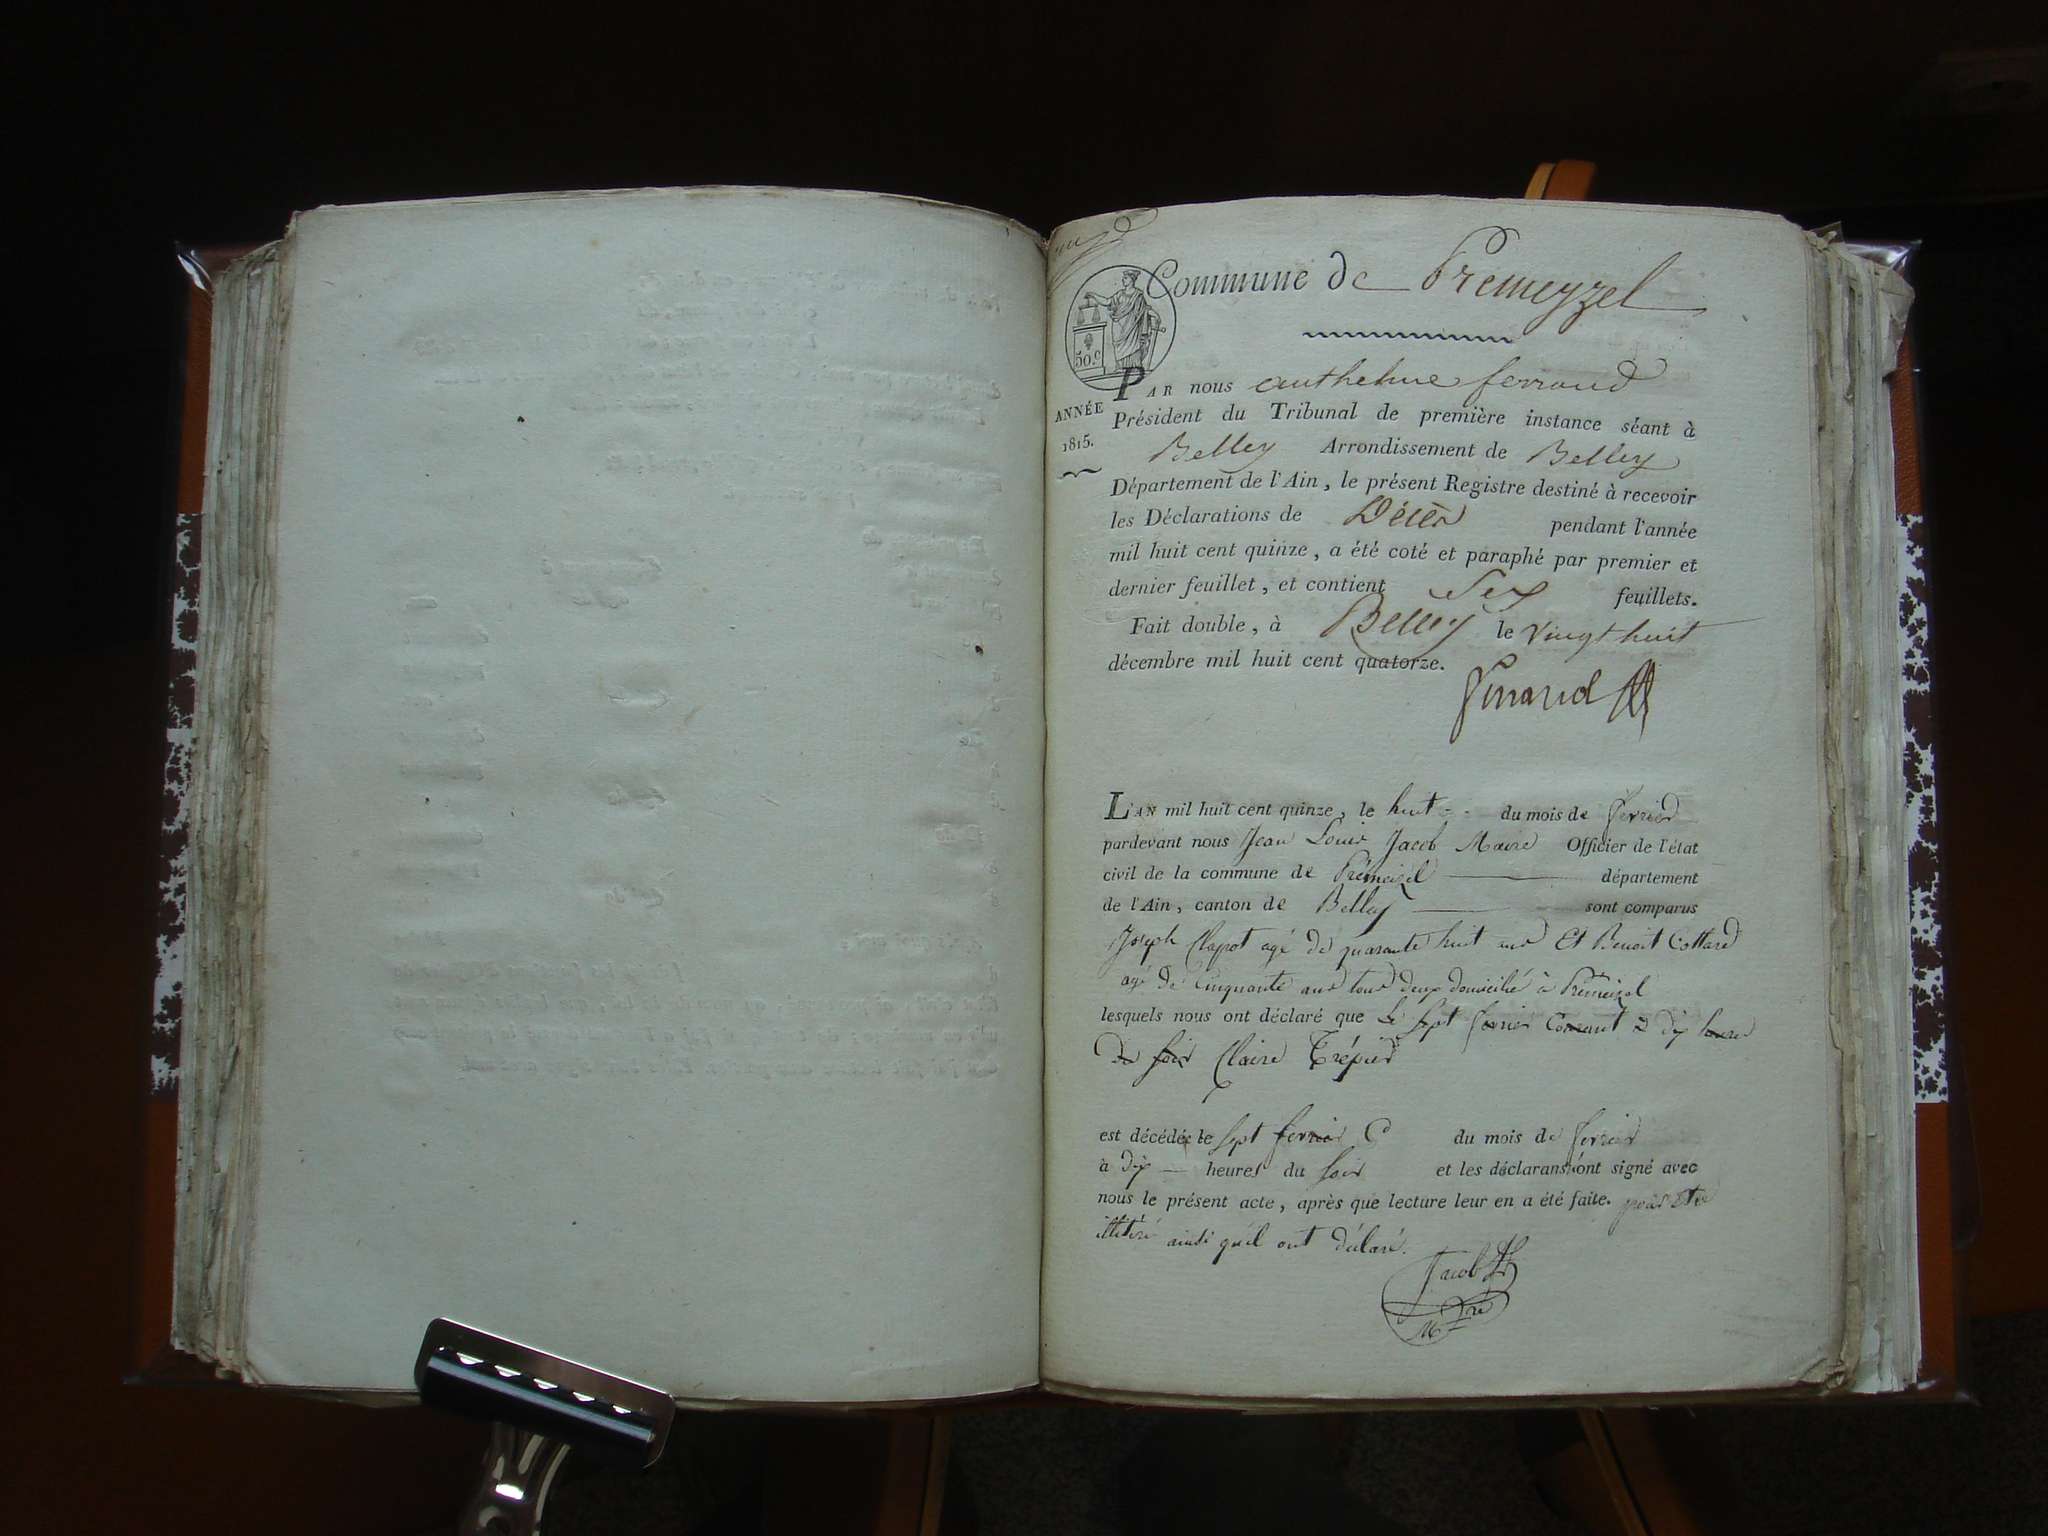 Commune de Premeyzel
50 c.
ANNÉE
1815.
PAR nous anthelme ferrand
Président du Tribunal de première instance séant à
Belley Arrondissement de Belley
Département de l'Ain, le présent Registre destiné à recevoir
les Déclarations de Décès pendant l'année
mil huit cent quinze, a été coté et paraphé par premier et
dernier feuillet, et contient Six feuillets.
Fait double, à Belley le vingt huit
décembre mil huit cent quatorze.
Ferrand
L'AN mil huit cent quinze, le huit du mois de fevrier
pardevant nous Jean Louis Jacob Maire Officier de l'état
civil de la commune de Prémeizel département
de l'Ain, canton de Belley sont comparus
Joseph Clapot agé de quarante huit ans Et Benoit Cottard
agé de Cinquante ans tous deux domicilié à Prémeizel
lesquels nous ont déclaré que Le sept fevrier Courant a dix heures
du soir Claire Trépier
est décédée le sept fevrier Ct du mois de fevrier
à dix heures du soir et les déclarans ont signé avec
nous le présent acte, après que lecture leur en a été faite. pour Etre
illitéré ainsi qu'il ont déclaré.
Jacob
Mre